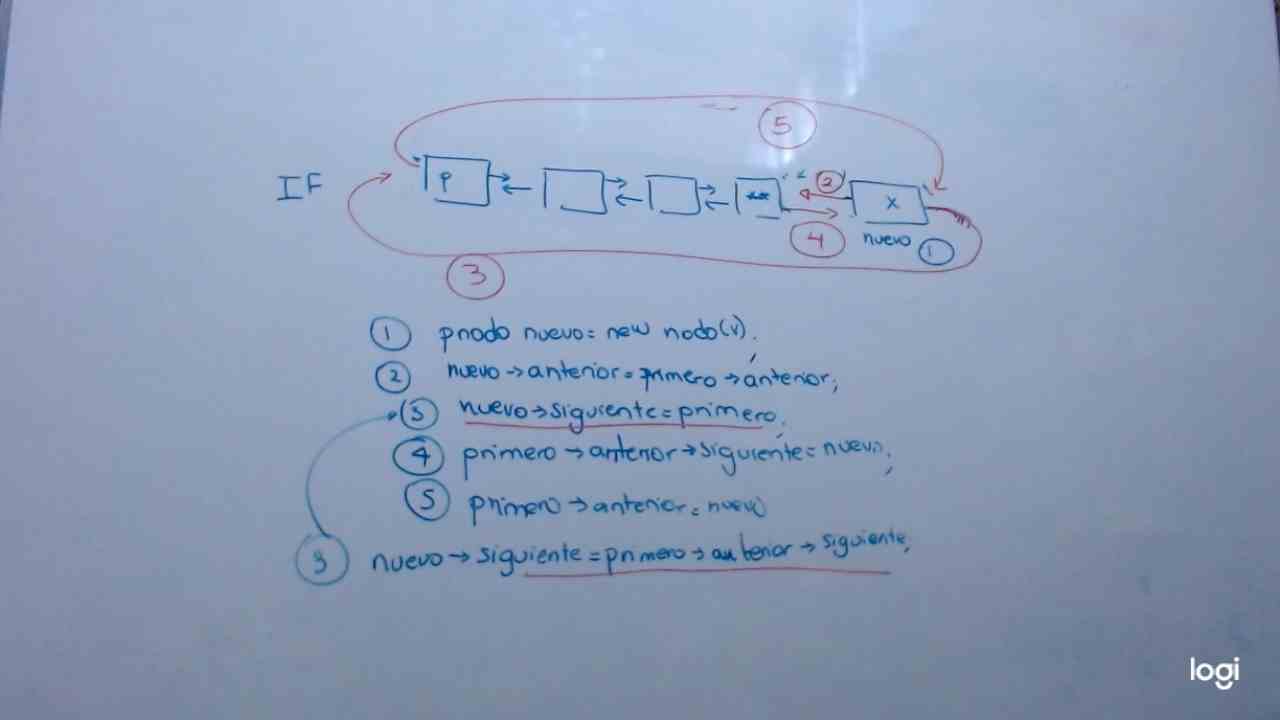 5
IF
p
2
x
4
nuevo 1
3
1 pnodo nuevo = new nodo(v).
2 nuevo → anterior = primero → anterior;
3 nuevo → siguiente = primero;
4 primero → anterior → siguiente = nuevo;
5 primero → anterior = nuevo
3 nuevo → siguiente = primero → anterior → siguiente;
logi